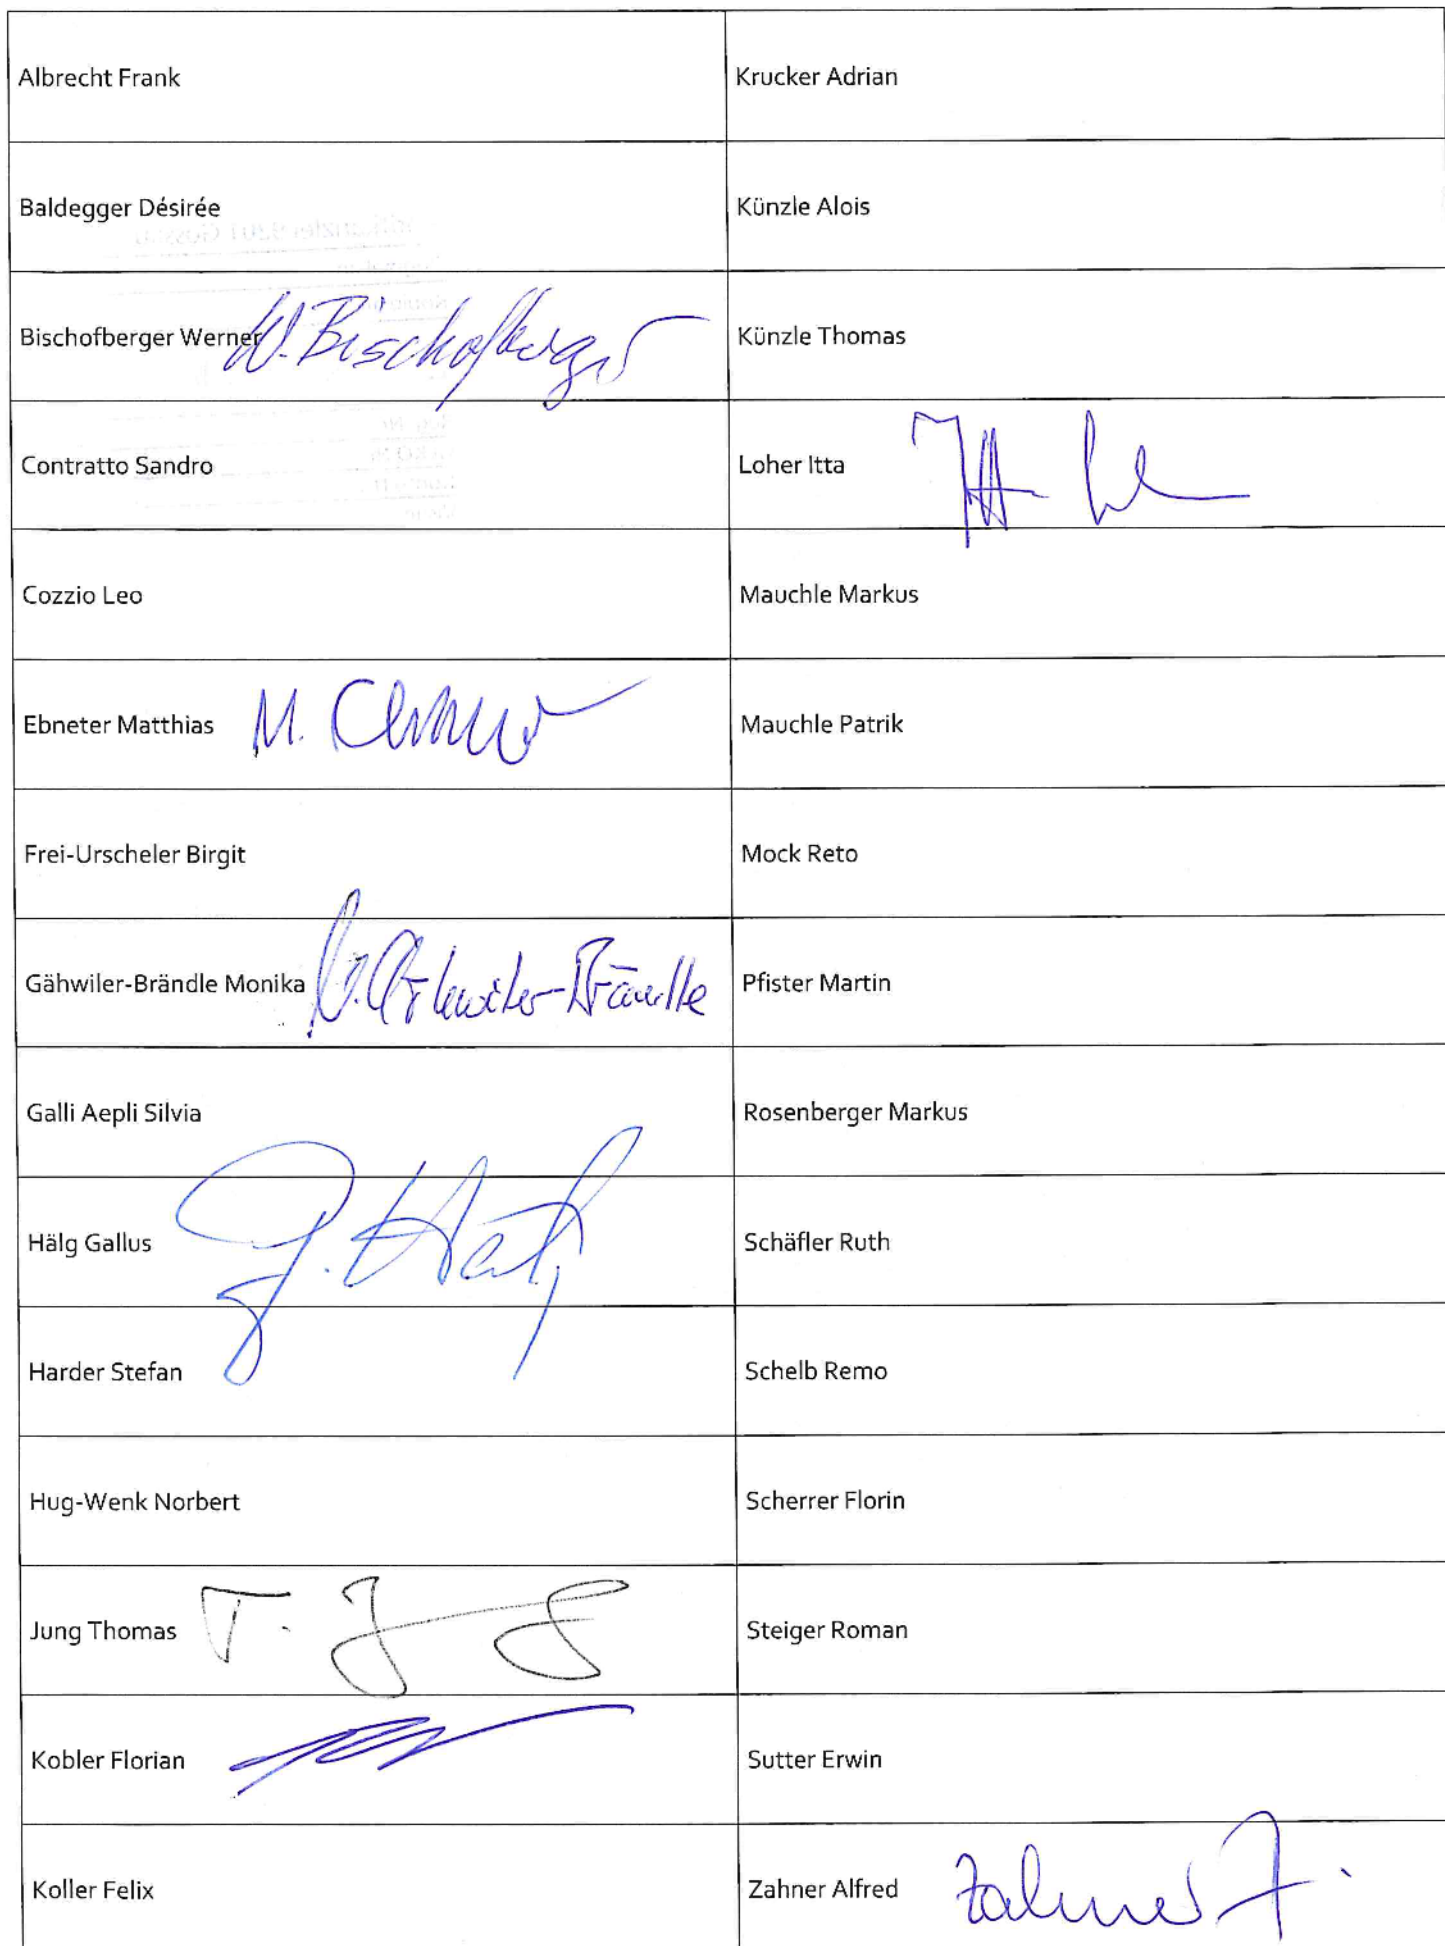 Albrecht Frank
Krucker Adrian
Baldegger Désirée
Künzle Alois
Bischofberger Werner W. Bischofberger
Künzle Thomas
Contratto Sandro
Loher Itta Itta
Cozzio Leo
Mauchle Markus
Ebneter Matthias M.
Mauchle Patrik
Frei-Urscheler Birgit
Mock Reto
Gähwiler-Brändle Monika Gähwiler-Brändle
Pfister Martin
Galli Aepli Silvia
Rosenberger Markus
Hälg Gallus
Schäfler Ruth
Harder Stefan
Schelb Remo
Hug-Wenk Norbert
Scherrer Florin
Jung Thomas T.
Steiger Roman
Kobler Florian
Sutter Erwin
Koller Felix
Zahner Alfred Zahner A.